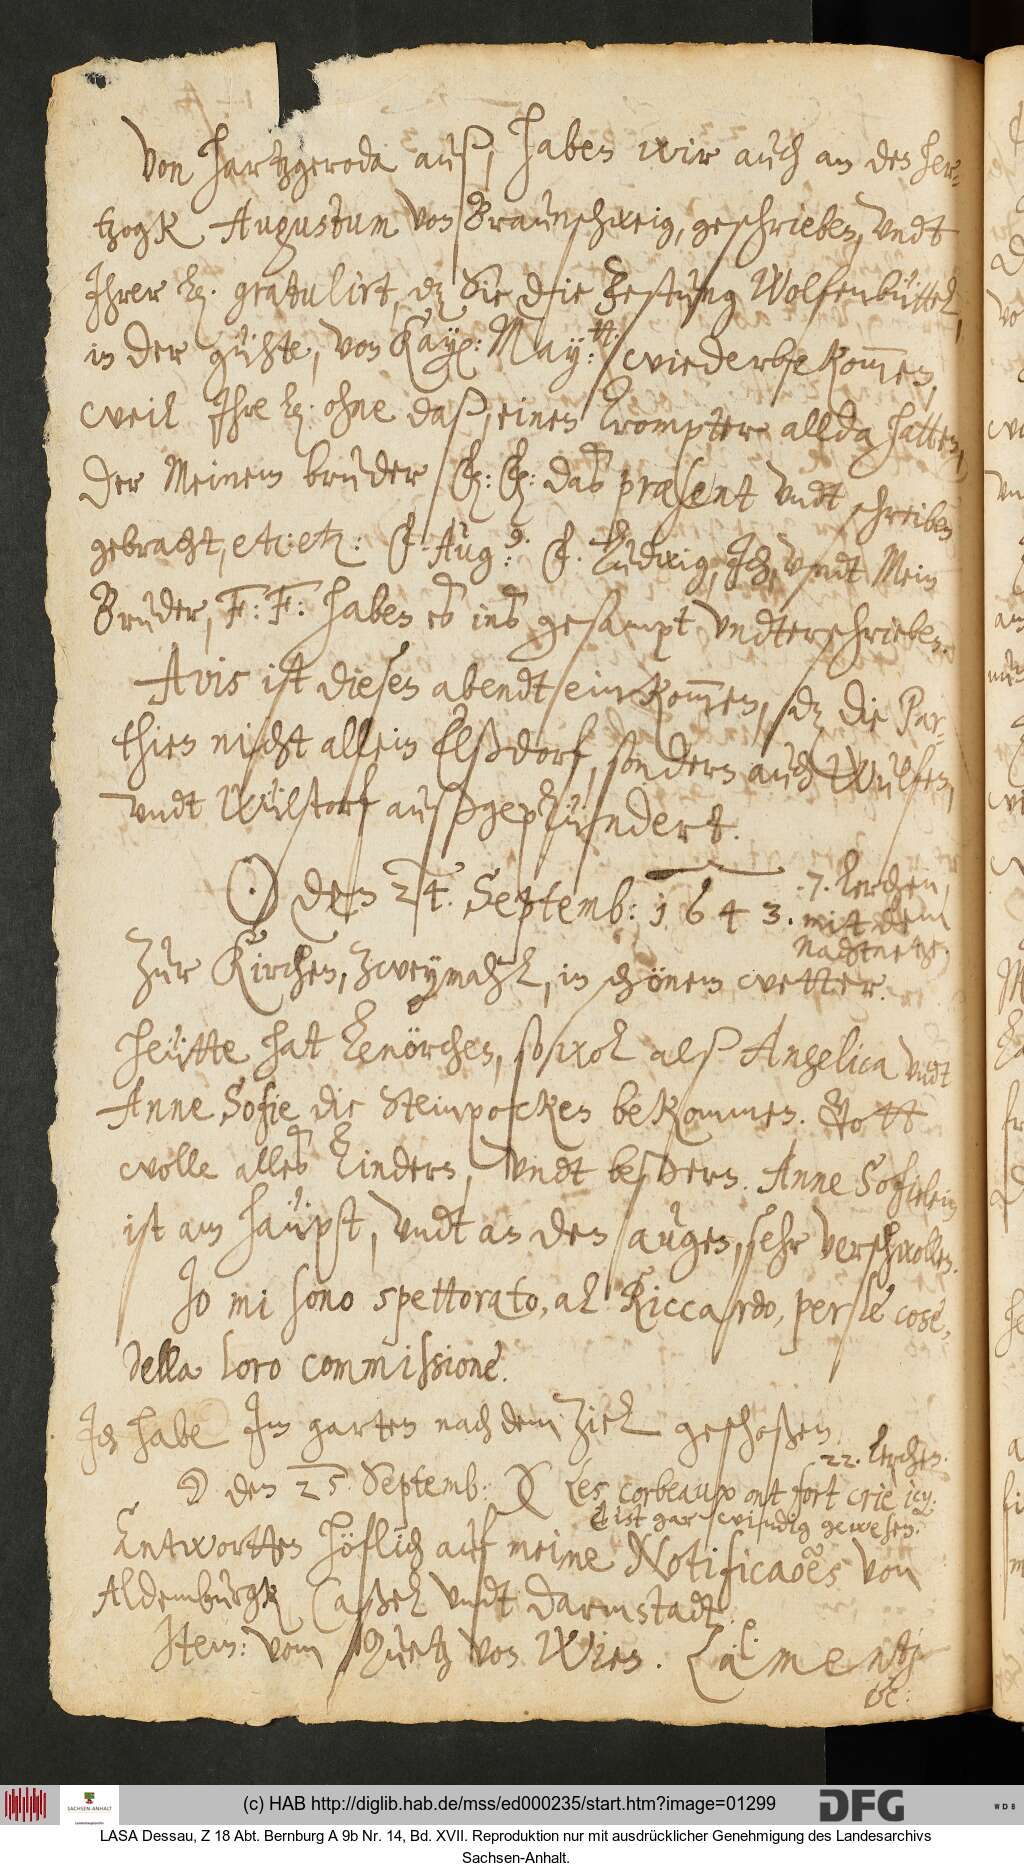 Von Hartzgeroda auß, haben wir auch an des Her-
tzogk Augustum Von Braunschweig, geschrieben, Vndt
Ihrer L. gratulirt, dz Sie die Festung Wolfenbüttel,
in der gühte, von Kay: May:tt: wiederbekommen,
weil Ihre L. ohne daß, einen Trompter allda hatten,
der Meinem bruder das præsent Vndt schreiben
gebracht, etc: etc: F. Aug: F. Ludwig, Ich, Vndt Mein
Bruder, F: F: haben es ins gesampt Vndterschrieben.
Avis ist diesen abendt einkommen, dz die Par-
thien nicht allein Elßdorf, sondern auch Wulfen,
Vndt Wülstorf außgeplündert.
☉ den 24. Septemb: 1643.
7. Lerchen,
mitt dem
nachtnetz.
Zur Kirchen, zweymahl, in schönem wetter.
Heütte hatt Lenorchen, so wol alß Angelica Vndt
Anne Sofie die Steinpocken bekommen. Gott
wolle alles lindern, Vndt beßern. Anne Sofielein
ist am Haüpt, Vndt an den augen, sehr verschwollen.
Io mi sono spettorato, al Riccardo, per le cose,
della loro commissione.
Ich habe Im garten nach dem Ziel geschoßen
22. Lerchen.
☽ den 25. Septemb: Les corbeaux ont fort crie icy.
Es ist gar windig gewesen.
Antwortten höflich auf meine Notificaões von
Aldemburgk Caßel Vndt Darmstadt.
Item: vom von Wien. Lamentj
etc:
(c) HAB http://diglib.hab.de/mss/ed000235/start.htm?image=01299
SACHSEN-ANHALT
DFG
W D B
LASA Dessau, Z 18 Abt. Bernburg A 9b Nr. 14, Bd. XVII. Reproduktion nur mit ausdrücklicher Genehmigung des Landesarchivs
Sachsen-Anhalt.